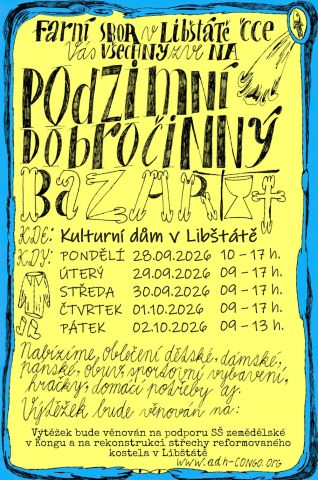 Farní sbor v Libštátě ČCE
Vás všechny zve na
Podzimní
dobročinný
bazar
KDE: Kulturní dům v Libštátě
KDY: PONDĚLÍ 28.09.2026 10 – 17 h.
ÚTERÝ 29.09.2026 09 – 17 h.
STŘEDA 30.09.2026 09 – 17 h.
ČTVRTEK 01.10.2026 09 – 17 h.
PÁTEK 02.10.2026 09 – 13 h.
Nabízíme, oblečení dětské, dámské,
pánské, obuv, sportovní vybavení,
hračky, domácí potřeby aj.
Výtěžek bude věnován na:
Výtěžek bude věnován na podporu SŠ zemědělské
v Kongu a na rekonstrukci střechy reformovaného
kostela v Libštátě
www.adh-congo.org